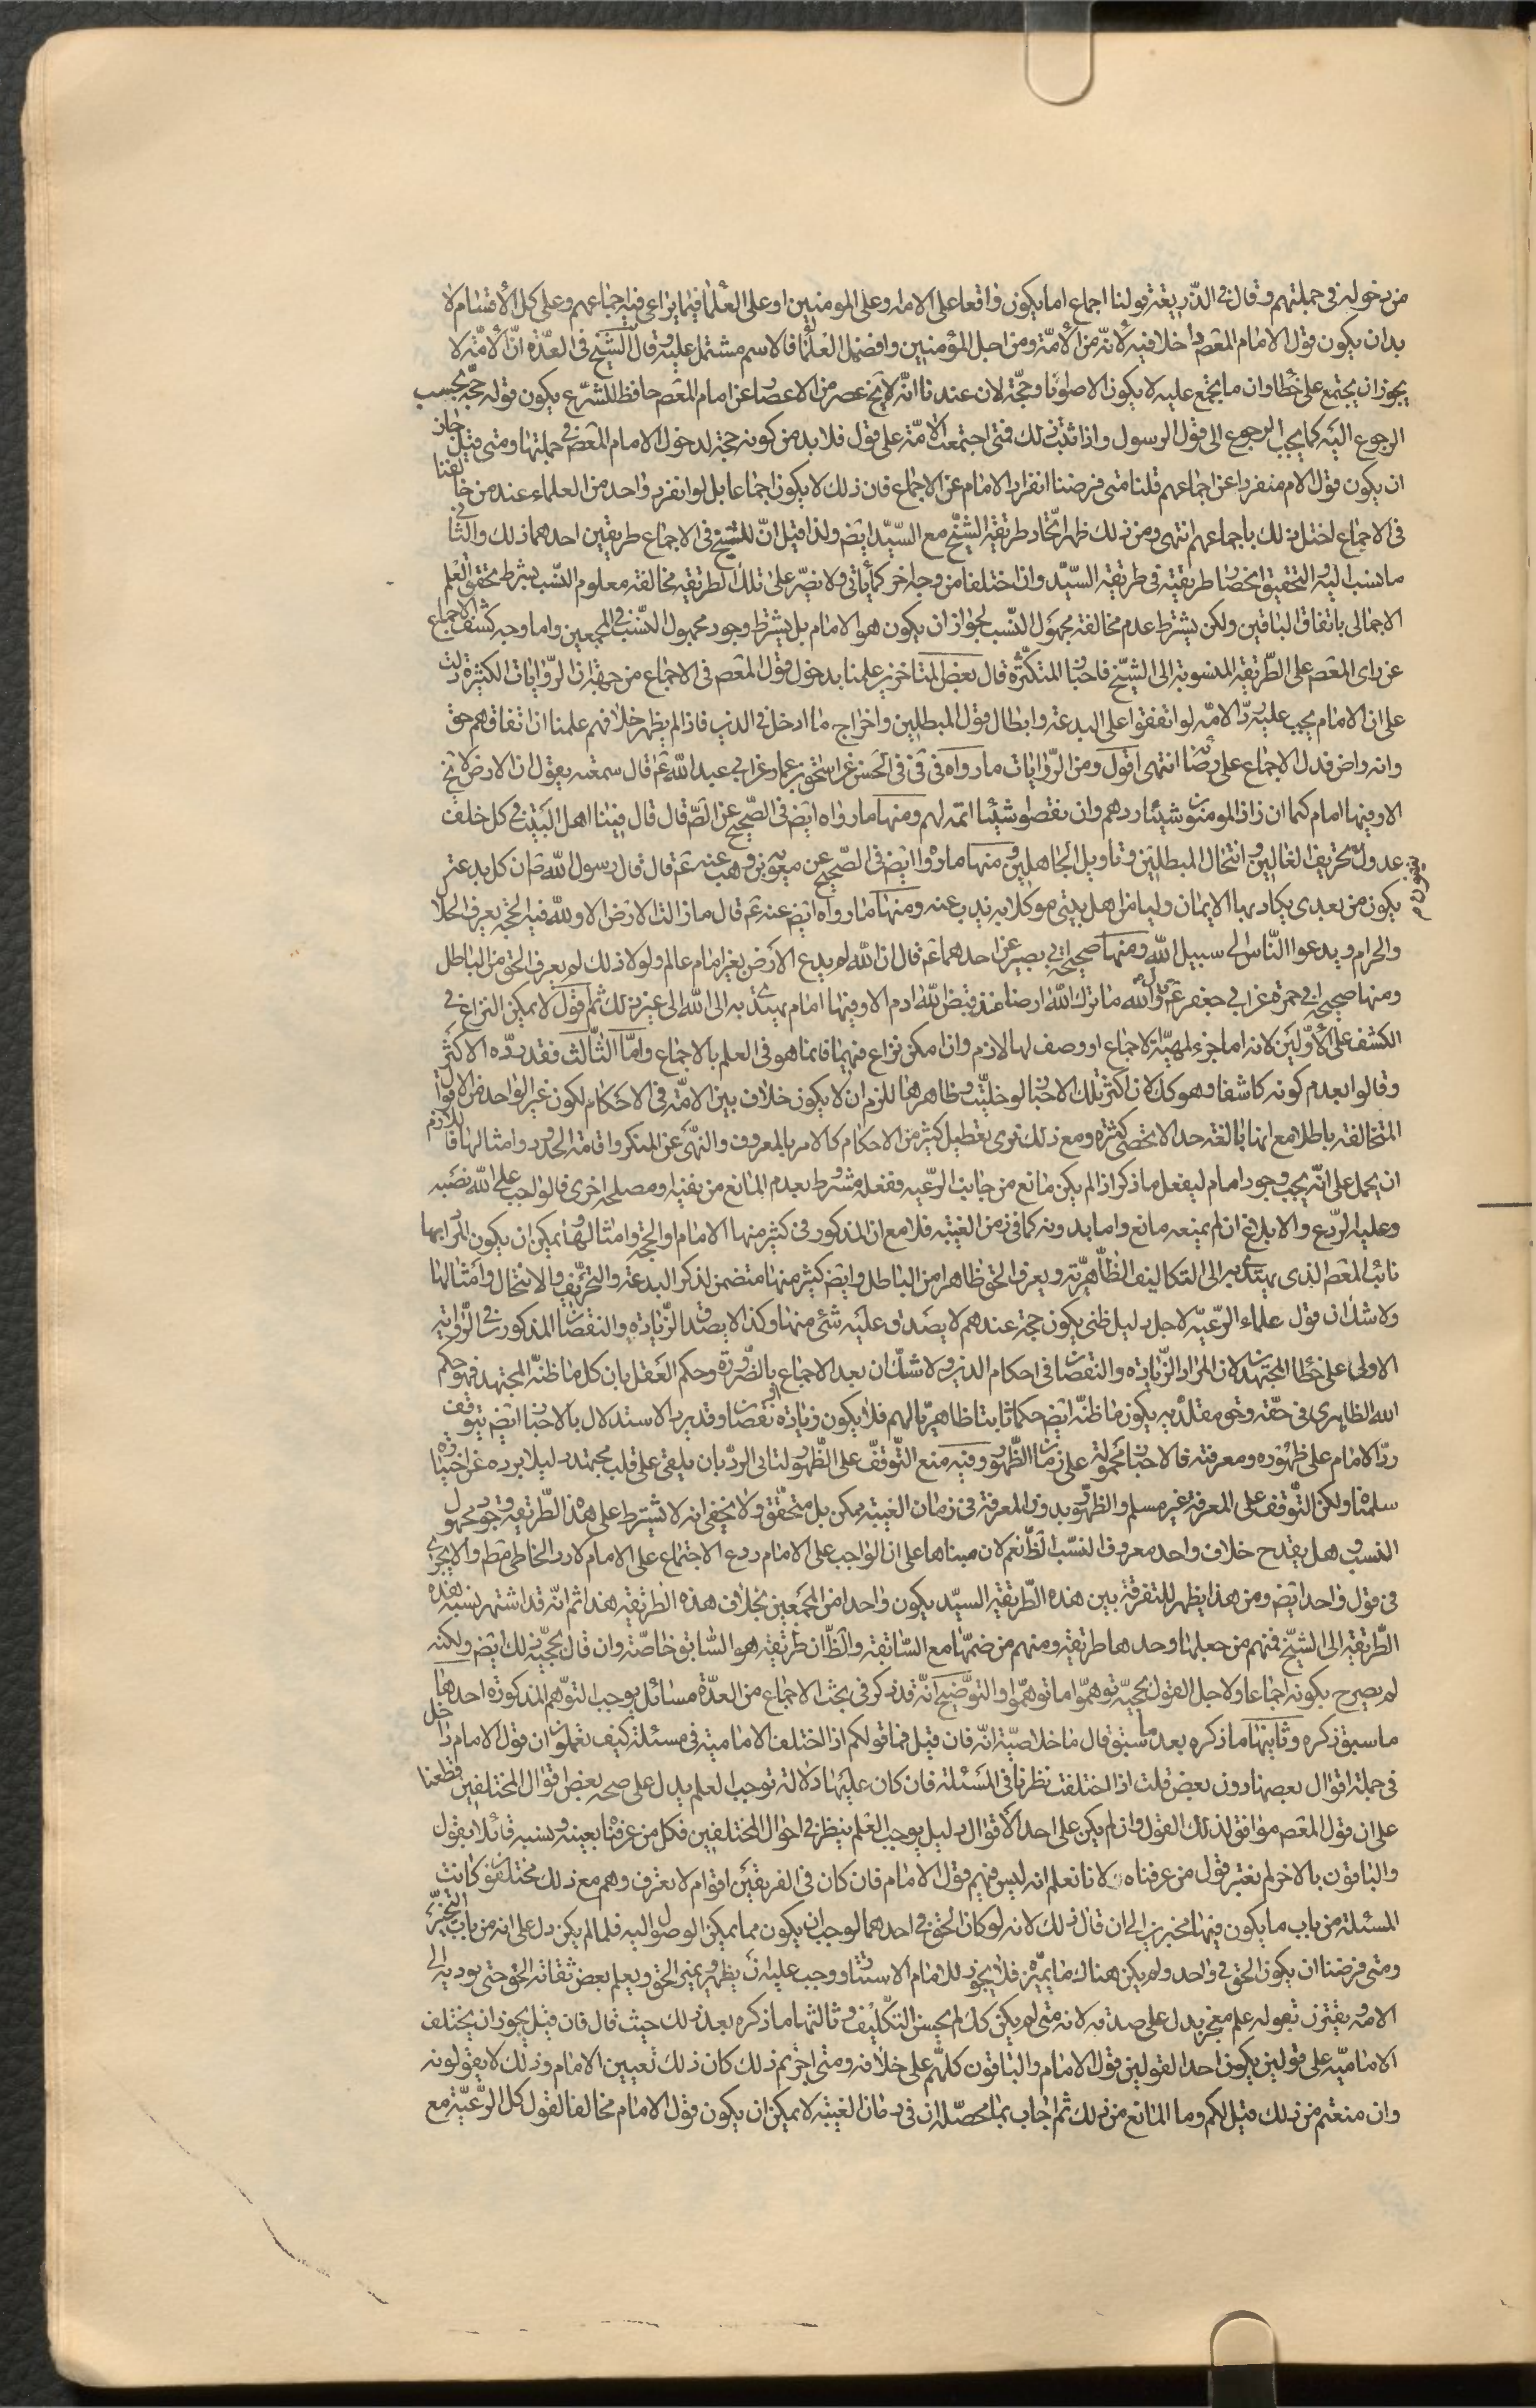 من دخوله في جملتهم وقال في الذريعة قولنا اجماع اما يكون واقعا على الامة وعلى المومنين او على العلماء فيما يراعى فيه اجماعهم وعلى كل الاقسام لا
بد ان يكون قول الامام المعصوم داخلا فيه لانه من الامة ومن اجل المؤمنين وافضل العلماء فالاسم مشتمل عليه وقال الشيخ في العدة ان الامة لا
يجوز ان يجتمع على خطا وان ما يجتمع عليه لا يكون الا صوابا وحجة لان عندنا انه لا يخ عصر من الاعصار عن امام المعصم حافظ للشرع يكون قوله حجة يجب
الرجوع اليه كما يجب الرجوع الى قول الرسول واذا ثبت ذلك فمتى اجتمعت الامة على قول فلا بد من كونه حجة لدخول الامام المعصم في جملتها ومتى قيل جاز
ان يكون قول الامام منفردا عن اجماعهم قلنا متى فرضنا انفراد الامام عن الاجماع فان ذلك لا يكون اجماعا بل لو انفرد واحد من العلماء عند من خالفنا
في الاجماع لختل ذلك باجماعهم انتهى ومن ذلك ظهر اتحاد طريقة الشيخ مع السيد ايض ولذا قيل ان للشيخ في الاجماع طريقين احدهما ذلك والثاني
ما نسب اليه والتحقيق انحصار طريقته في طريقة السيد وان اختلفا من وجه اخر كما ياتي ولا يضر على تلك الطريقة مخالفة معلوم النسب بشرط تحقق العلم
الاجمالي باتفاق الباقين ولكن يشترط عدم مخالفة مجهول النسب لجواز ان يكون هو الامام بل يشترط وجود مجهول النسب في المجمعين واما وجه كشف الاجماع
عن راى المعصم على الطريقة المنسوبة الى الشيخ فاخبار المتكثرة قال بعض المتاخرين علمنا بدخول قول المعصم في الاجماع من جهة ان الروايات الكثيرة دلت
على ان الامام يجب عليه رد الامة لو اتفقوا على البدعة وابطال قول المبطلين واخراج ما ادخل في الدين فاذا لم يظهر خلافهم علمنا ان اتفاقهم حق
وانه راض فدل الاجماع على رضاه انتهى اقول ومن الروايات ما رواه في في في الحسن عن اسحق بن عمار عن ابي عبد الله ع قال سمعته يقول ان الارض لا يخ
الا وفيها امام كما ان زاد المومنون شيئا ردهم وان نقصوا شيئا اتمه لهم ومنها ما رواه ايض في الصحيح عن الص قال قال فينا اهل البيت في كل خلف
عدول ينفون عنه تحريف الغالين وانتحال المبطلين وتاويل الجاهلين ومنها ما رواه ايض في الصحيح عن معوية بن وهب عنه ع قال قال رسول الله ص ان كل بدعة
يكون من بعدي يكاد بها الايمان وليا من اهل بيتي موكلا به يذب عنه ومنها ما رواه ايض عنه ع قال ما زالت الارض الا ولله فيه الحجة يعرف الحلال
والحرام ويدعوا الناس الى سبيل الله ومنها صحيحة ابي بصير عن احدهما ع قال ان الله لم يدع الارض بغير امام عالم ولولا ذلك لم يعرف الحق من الباطل
ومنها صحيحة ابي حمزة عن ابي جعفر ع قال والله ما ترك الله ارضا منذ قبض الله ادم الا وفيها امام يهتدى به الى الله الى غير ذلك ثم اقول لا يمكن النزاع في
الكشف على الاولين لانه اما جزء لمهية الاجماع او وصف لها لازم وان امكن نزاع فيهما فانما هو في العلم بالاجماع واما الثالث فقد رده الاكثر
وقالوا بعدم كونه كاشفا وهو كك لان اكثر تلك الاخبار لو خليت وظاهرها للزم ان لا يكون خلاف بين الامة في الاحكام لكون غير الواحد من الاقوال
المتخالفة باطلا مع انها بالغة حد الا يحصى كثرة ومع ذلك نرى تعطيل كثير من الاحكام كالامر بالمعروف والنهى عن المنكر واقامة الحدود وامثالها فاللازم
ان يحمل على انه يجب وجود امام ليفعل ما ذكر اذا لم يكن مانع من جانب الرعية وفعله مشروط بعدم المانع من بقية ومصلحة اخرى فالواجب على الله نصبه
وعليه الردع والابلاغ ان لم يمنعه مانع واما بدونه كما في زمن الغيبة فلا مع ان المذكور في كثير منها الامام او الحجة وامثالهما ويمكن ان يكون المراد بهما
نائب المعصم الذي يهتدى به الى التكاليف الظاهرية ويعرف الحق ظاهرا من الباطل وايض كثير منها متضمن لذكر البدعة والتحريف والانتحال وامثالها
ولا شك ان قول علماء الرعية لاجل دليل ظني يكون حجة عندهم لا يصدق عليه شئ منها وكذا لا يصدق الزيادة والنقصان المذكور في الرواية
الاولى على خطا المجتهد لان المراد الزيادة والنقصان في احكام الدين ولا شك ان بعد الاجماع بالضرورة وحكم العقل بان كل ما ظنه المجتهد فهو حكم
الله الظاهري في حقه وحق مقلديه يكون ما ظنه ايض حكما ثابتا ظاهريا لهم فلا يكون زيادة او نقصان وقد يرد الاستدلال بالاخبار ايض بتوقف
رد الامام على ظهوره ومعرفته فالاخبار محمولة على زمان الظهور وفيه منع التوقف على الظهور لتاتى الرد بان يلقى على قلب مجتهد دليلا يرده عن اختياره
سلمنا ولكن التوقف على المعرفة غير مسلم والظهور بدون المعرفة في زمان الغيبة ممكن بل متحقق ولا يخفى انه لا يشترط على هذه الطريقة وجود مجهول
النسب وهل يقدح خلاف واحد معروف النسب الظ نعم لان مبناها على ان الواجب على الامام ردع الاجتماع على الامام لا رد الخاطى مط والا يجرى
في قول واحد ايض ومن هذا يظهر للتفرقة بين هذه الطريقة السيد يكون واحدا من المجمعين بخلاف هذه الطريقة هذا ثم انه قد اشتهر نسبة هذه
الطريقة الى الشيخ فمنهم من جعلها وحدها طريقته ومنهم من ضمها مع السابقة والظ ان طريقته هو السابق خاصة وان قال بحجية ذلك ايض ولكنه
لم يصرح بكونه اجماعا ولاجل القول بحجيته توهموا ما توهموا والتوضيح انه قد ذكر في بحث الاجماع من العدة مسائل يوجب التوهم المذكورة احدها
ما سبق ذكره وثانيها ما ذكره بعد ما سبق قال ما خلاصته انه فان قيل فما قولكم اذا اختلفت الامامية في مسئلة كيف تعلمون ان قول الامام داخل
في جملة اقوال بعضها دون بعض قلت اذا اختلفت نظرنا في المسئلة فان كان عليها دلالة توجب العلم يدل على صحة بعض اقوال المختلفين قطعنا
على ان قول المعصم موافق لذلك القول وان لم يكن على احد الاقوال دليل يوجب العلم ينظر في احوال المختلفين فكل من عرفناه بعينه ونسبه قائلا بقول
والباقون بالاخر لم نعتبر قول من عرفناه لانا نعلم انه ليس فيهم قول الامام فان كان في الفريقين اقوام لا نعرف وهم مع ذلك مختلفون كانت
المسئلة من باب ما يكون فيها مخيرين الى ان قال ذلك لانه لو كان الحق في احدهما لوجب ان يكون مما يمكن الوصول اليه فلما لم يكن دل على انه من باب التخيير
ومتى فرضنا ان يكون الحق في واحد ولم يكن هناك ما يميزه فلا يجوز للامام الاستتار ووجب عليه ان يظهر ويمير الحق ويعلم بعض ثقاته الحق حتى يوديه الى
الامة ويقترن بقوله علم معجز يدل على صدقه لانه متى لم يكن كك لم يحسن التكليف وثالثها ما ذكره بعد ذلك حيث قال فان قيل يجوز ان يختلف
الامامية على قولين يكون احد القولين قول الامام والباقون كلهم على خلافه ومتى اجزتم ذلك كان ذلك تعيين الامام وذلك لا يقولونه
وان منعتم من ذلك قيل لكم وما المانع من ذلك ثم اجاب بما محصله ان في زمان الغيبة لا يمكن ان يكون قول الامام مخالفا لقول كل الرعية مع